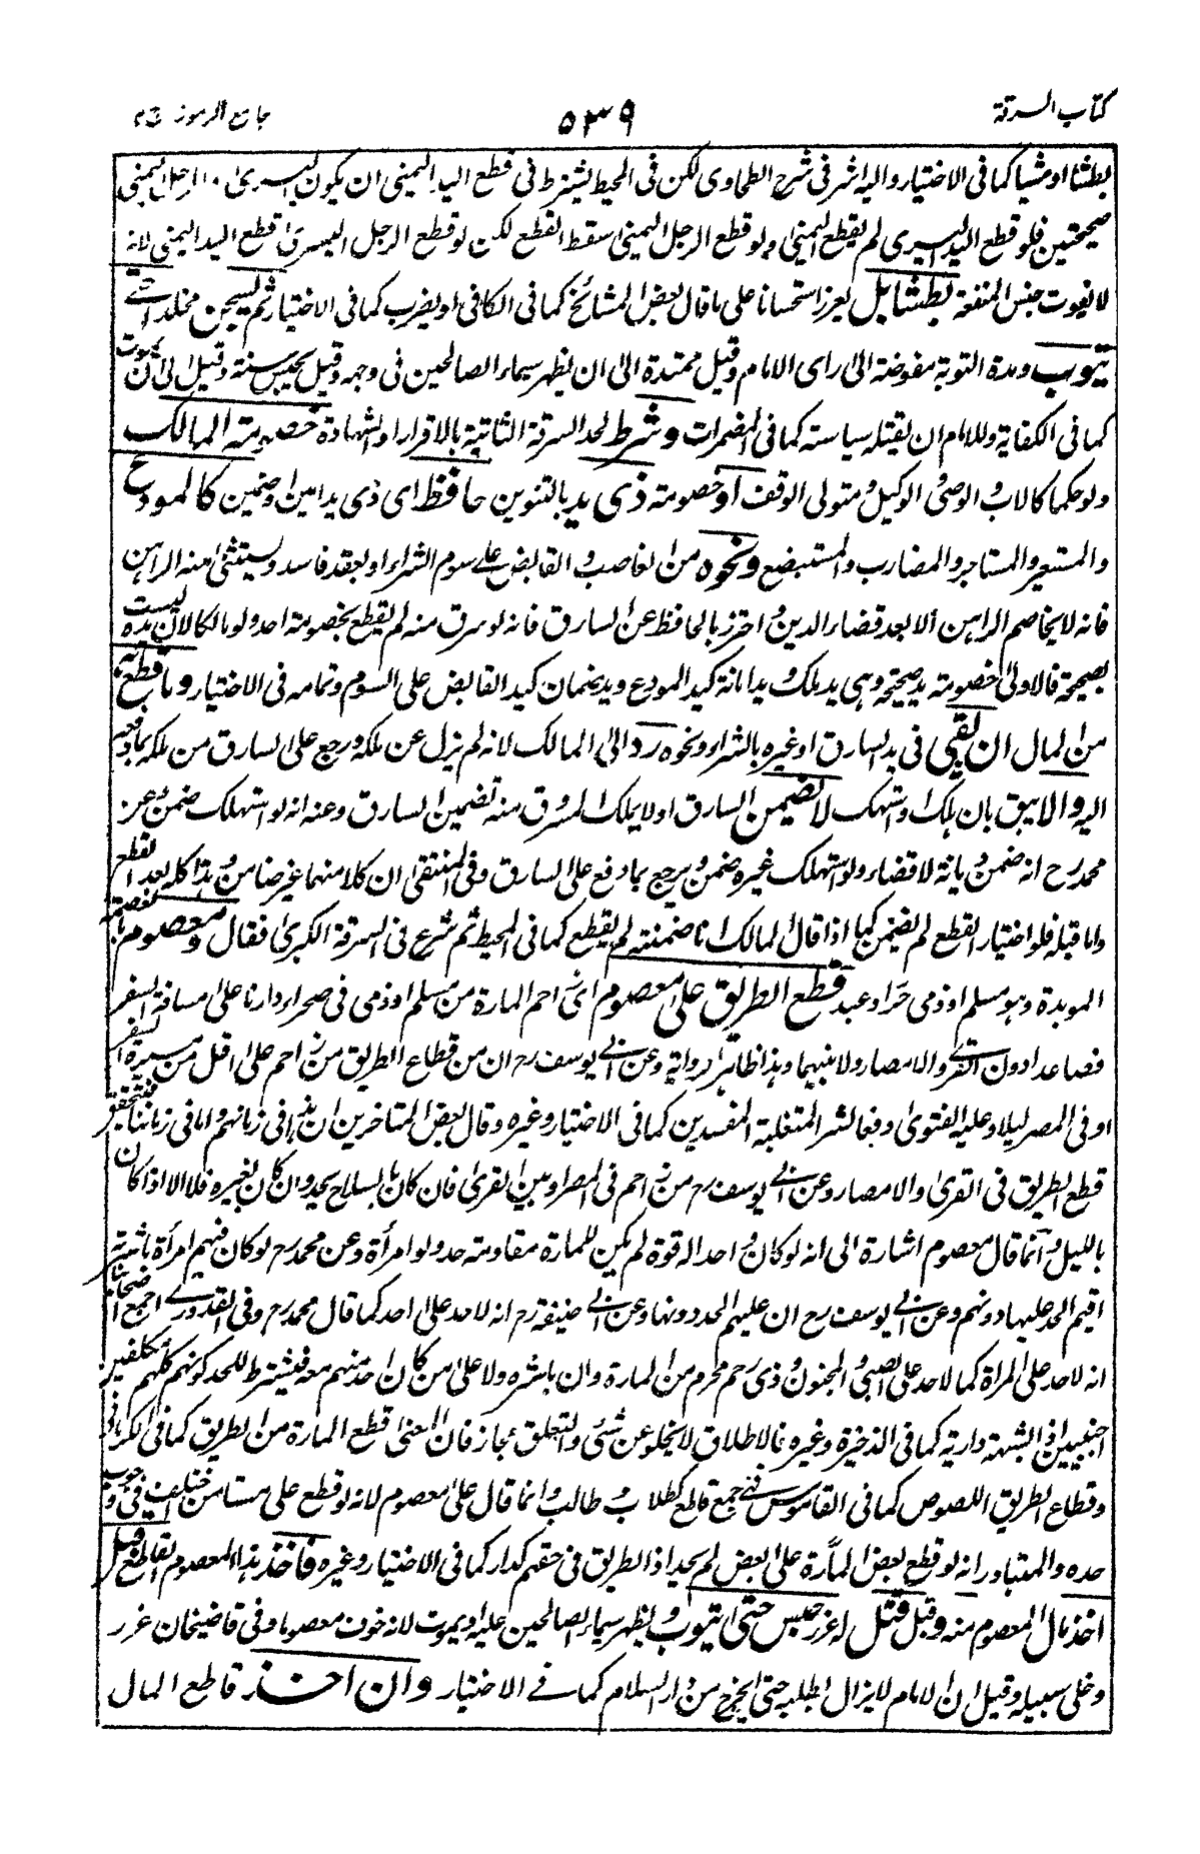 كتاب السرقة
٥٣٩
جامع الرموز ج٣
بطشا او مشيا كما فى الاختيار واليه اشر فى شرح الطحاوى لكن فى المحيط يشترط فى قطع اليد اليمنى ان يكون اليسرى والرجل اليمنى
صحيحتين فلو قطع اليد اليسرى لم يقطع اليمنى ولو قطع الرجل اليمنى سقط القطع لكن لو قطع الرجل اليسرى قطع اليد اليمنى لانه
لا يفوت جنس المنفعة بطشا بل يعزز استحسانا على ما قال بعض المشائخ كما فى الكافى او يضرب كما فى الاختيار ثم يسجن مخلدا حتى
يتوب ومدة التوبة مفوضة الى راى الامام وقيل ممتدة الى ان يظهر سيماء الصالحين فى وجهه وقيل يحبس سنة وقيل الى ان يموت
كما فى الكفاية وللامام ان يقتله سياسة كما فى المضمرات وشرط لحد السرقة الثابتة بالاقرار او الشهادة خصومة المالك
ولو حكما كالاب والوصى والوكيل ومتولى الوقف او خصومة ذى يد بالتنوين حافظ اى ذى يد امين او ضمين كالمودع
والمستعير والمستاجر والمضارب والمستبضع ونحوه من الغاصب والقابض على سوم الشراء او بعقد فاسد ويستثنى منه الراهن
فانه لا يخاصم الراهن الا بعد قضاء الدين واحترز بالحافظ عن السارق فانه لو سرق منه لم يقطع بخصومة احد ولو مالكا لان يده ليست
بصحيحة فالاولى خصومة يد صحيحة وهى يد ملك ويد امانة كيد المودع ويد ضمان كيد القابض على السوم وتمامه فى الاختيار وما قطع به
من المال ان بقى فى يد السارق او غيره بالشراء ونحوه رد الى المالك لانه لم يزل عن ملكه ورجع على السارق من ملكه بما دفعه
اليه والا يبق بان هلك او استهلك لا يضمن السارق اولا يملك المسروق منه تضمين السارق وعنه انه لو استهلك ضمن وعن
محمد رح انه ضمن ديانة لا قضاء ولو استهلك غيره ضمن ويرجع بما دفع على السارق وفى المنتقى ان كلا منهما غير ضامن وهذا كله بعد القطع
واما قبله فلو اختار القطع لم يضمن كما اذا قال المالك انا ضمنته لم يقطع كما فى المحيط ثم شرع فى السرقة الكبرى فقال ومعصوم بالعصمة
الموبدة وهو مسلم او ذمى حرا او عبد قطع الطريق على معصوم اى زاحم المارة من مسلم او ذمى فى صحراء دارنا على مسافة السفر
فصاعدا دون القرى والامصار ولا بينهما وهذا ظاهر الرواية وعن ابى يوسف رح ان من قطاع الطريق من زاحم على اقل من مسيرة السفر
او فى المصر ليلا وعليه الفتوى دفعا لشر المتغلبة المفسدين كما فى الاختيار وغيره وقال بعض المتاخرين ان هذا فى زمانهم واما فى زماننا فيتحقق
قطع الطريق فى القرى والامصار وعن ابى يوسف رح من زاحم فى المصر او بين القرى فان كان بالسلاح يحد وان كان بغيره فلا الا اذا كان
بالليل وانما قال معصوم اشارة الى انه لو كان واحدا له قوة لم يكن للمارة مقاومته حد ولو امرأة وعن محمد رح لو كان فيهم امرأة باشرت
اقيم الحد عليها دونهم وعن ابى يوسف رح ان عليهم الحد دونها وعن ابى حنيفة رح انه لا حد على احد كما قال محمد رح وفى القدورى اجمع اصحابنا
انه لا حد على المرأة كما لا حد على الصبى والمجنون وذى رحم محرم من المارة وان باشره ولا على من كان احد منهم معه فيشترط للحد كونهم كلهم مكلفين
اجنبيين اذ الشبهة دارية كما فى الذخيرة وغيره فالاطلاق لا يخلو عن شئ والتعلق مجاز فان المعنى قطع المارة من الطريق كما فى الكرمانى
وقطاع الطريق اللصوص كما فى القاموس فهى جمع قاطع كطلاب وطالب وانما قال على معصوم لانه لو قطع على مستامن ختلف فى وجوب
حده والمتبادر انه لو قطع بعض المارة على البعض لم يحد اذ الطريق فى حقهم كدار كما فى الاختيار وغيره فاخذ هذا المعصوم القاطع قبل
اخذ مال المعصوم منه وقبل قتل له عزر حبس حتى يتوب ويظهر سيماء الصالحين عليه او يموت لانه خوف معصوما وفى قاضيخان عزر
وخلى سبيله وقيل ان الامام لا يزال يطلبه حتى يخرج من دار السلام كما فى الاختيار وان اخذ قاطع المال